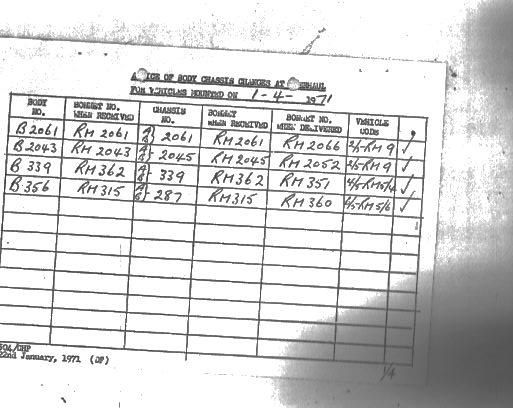 ADVICE OF BODY CHASSIS CHANGES AT OVERHAUL
FOR VEHICLES MOUNTED ON 1-4-1971
BODY NO. BONNET NO. WHEN RECEIVED CHASSIS NO. BONNET WHEN RECEIVED BONNET NO. WHEN DELIVERED VEHICLE CODE
B2061 RM2061 2061 RM2061 RM2066 2/5 RM9 ✓
B2043 RM2043 2045 RM2045 RM2052 2/5 RM9 ✓
B339 RM362 339 RM362 RM351 4/5 RM5/4 ✓
B356 RM315 287 RM315 RM360 6/5 RM5/6 ✓
504/DHP
22nd January, 1971 (DP)
1/4